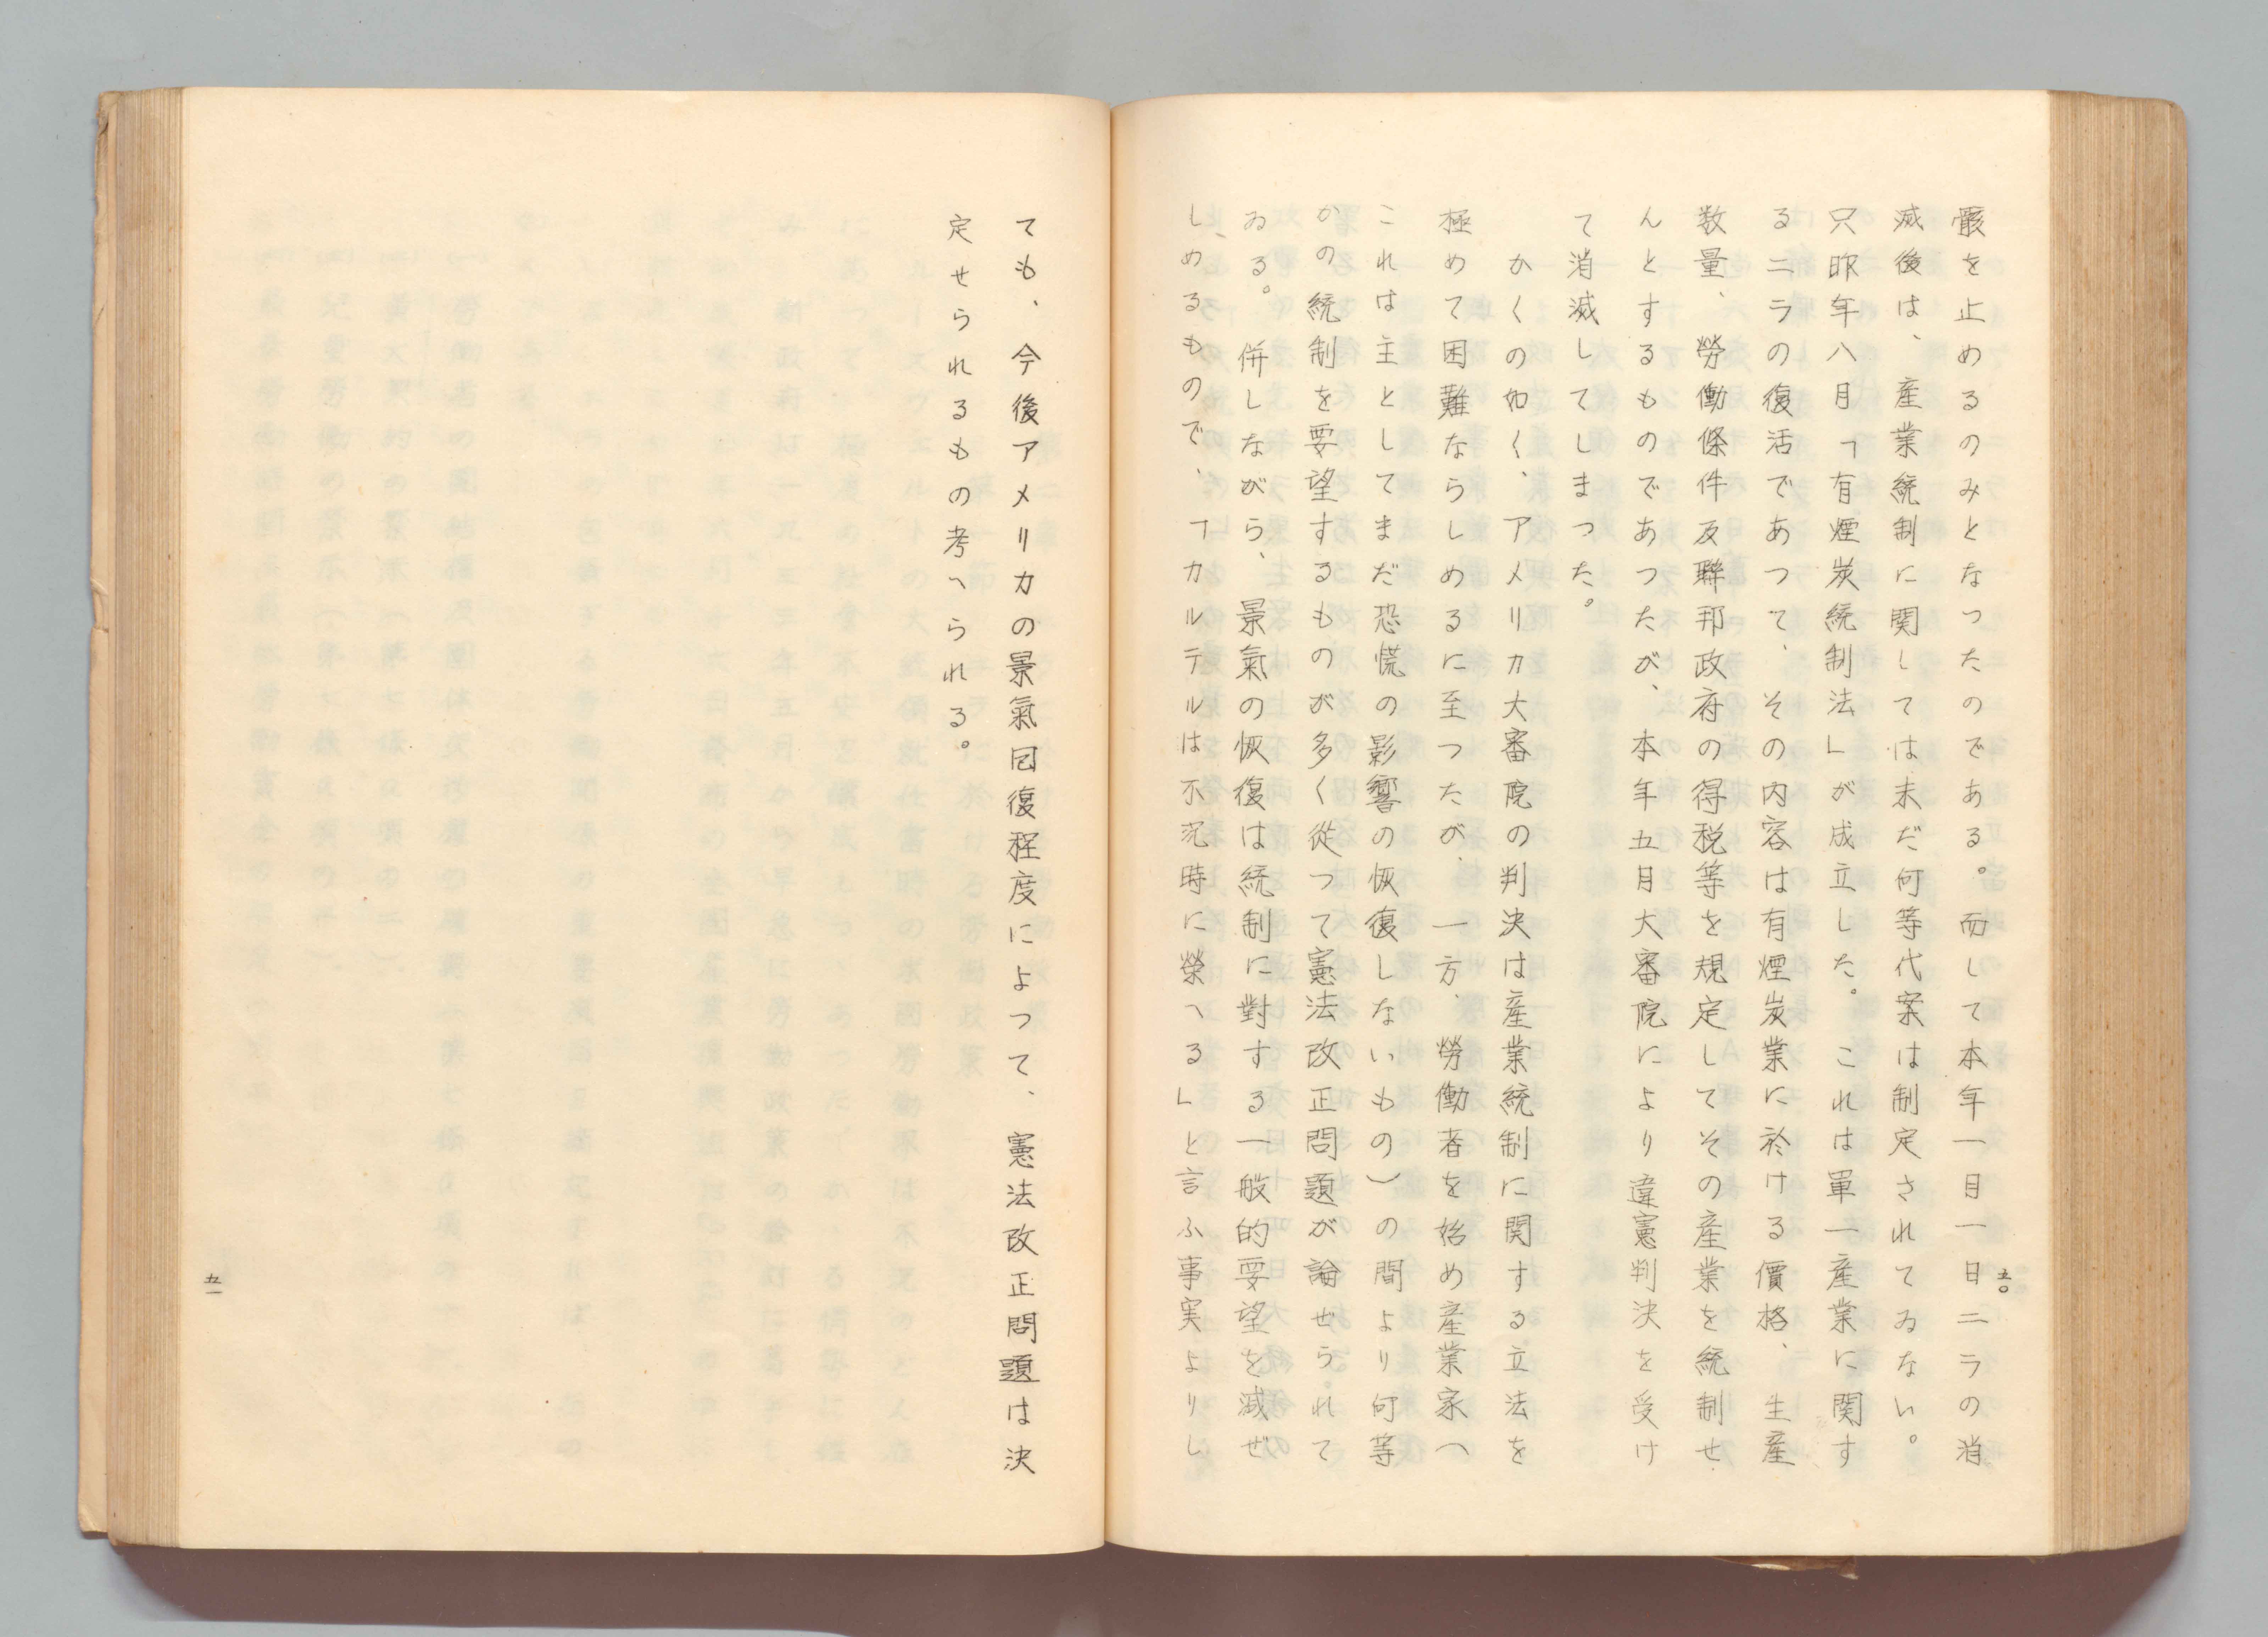 骸を止めるのみとなつたのである。而して本年一月一日ニラの消
滅後は、産業統制に関しては未だ何等代案は制定されてゐない。
只昨年八月「有煙炭統制法」が成立した。これは単一産業に関す
るニラの復活であつて、その内容は有煙炭業に於ける價格、生産
数量、勞働條件反聯邦政府の得税等を規定してその産業を統制せ
んとするものであつたが、本年五月大審院により違憲判決を受け
て消滅してしまつた。
かくの如く、アメリカ大審院の判決は産業統制に関する立法を
極めて困難ならしめるに至つたが、一方、勞働者を始め産業家へ
これは主としてまだ恐慌の影響の恢復しないもの）の間より何等
かの統制を要望するものが多く従つて憲法改正問題が論ぜられて
ゐる。併しながら、景氣の恢復は統制に對する一般的要望を減ぜ
しめるもので、「カルテルは不況時に榮へる」と言ふ事実よりし
五〇
ても、今後アメリカの景氣回復程度によつて、憲法改正問題は決
定せられるもの考へられる。
五一